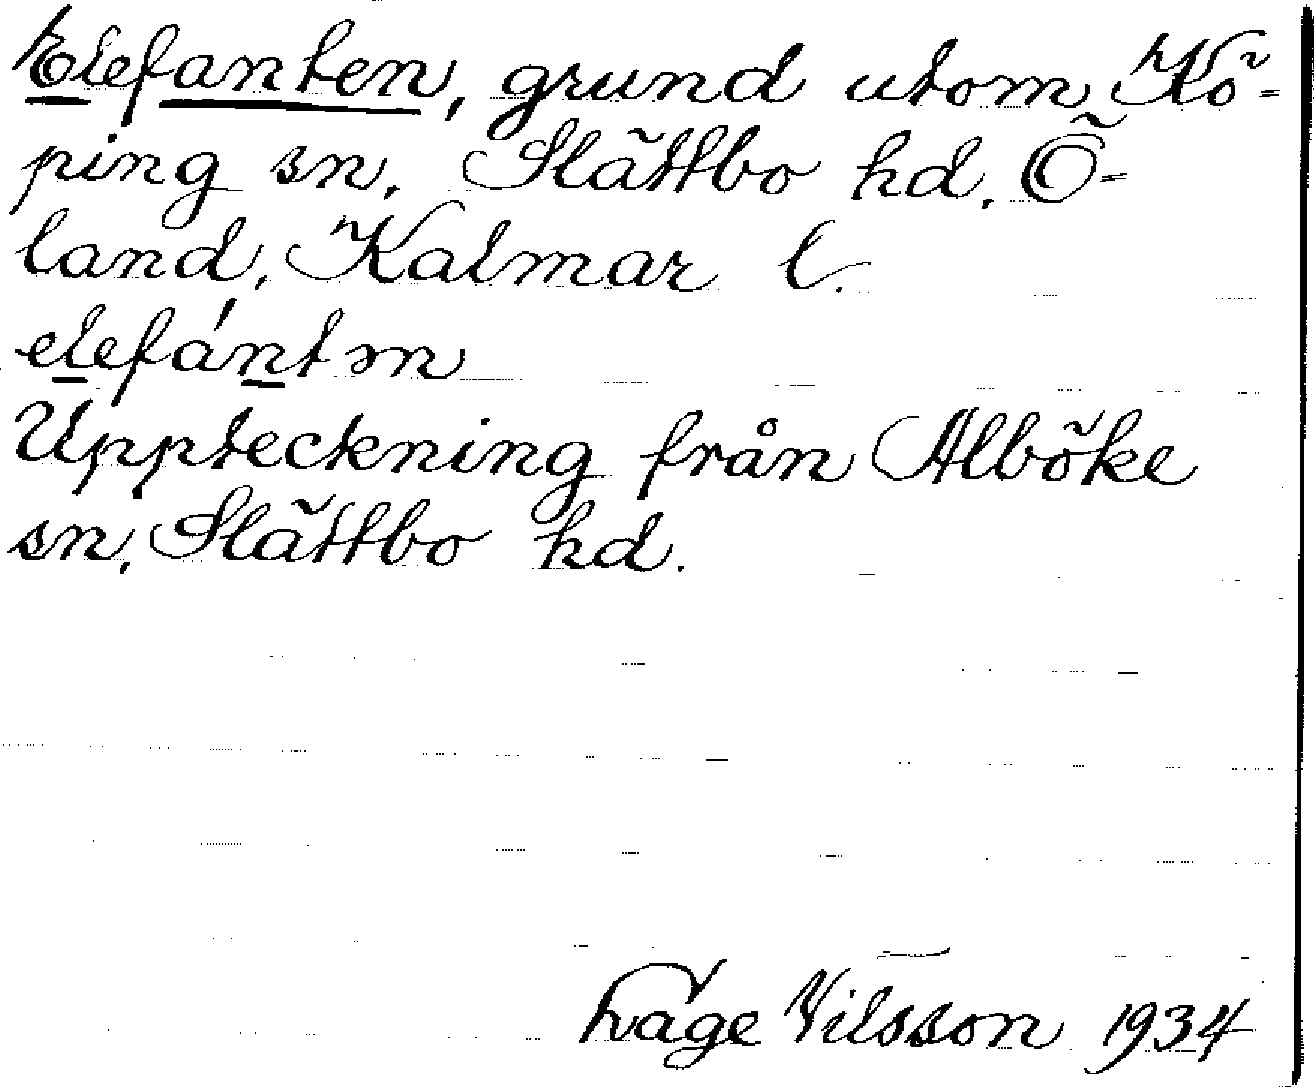 Elefanten, grund utom Kö-
ping sn, Slättbo hd. Ö-
land, Kalmar l.
elefántən
Uppteckning från Alböke
sn, Slättbo hd.
Låge Nilsson 1934